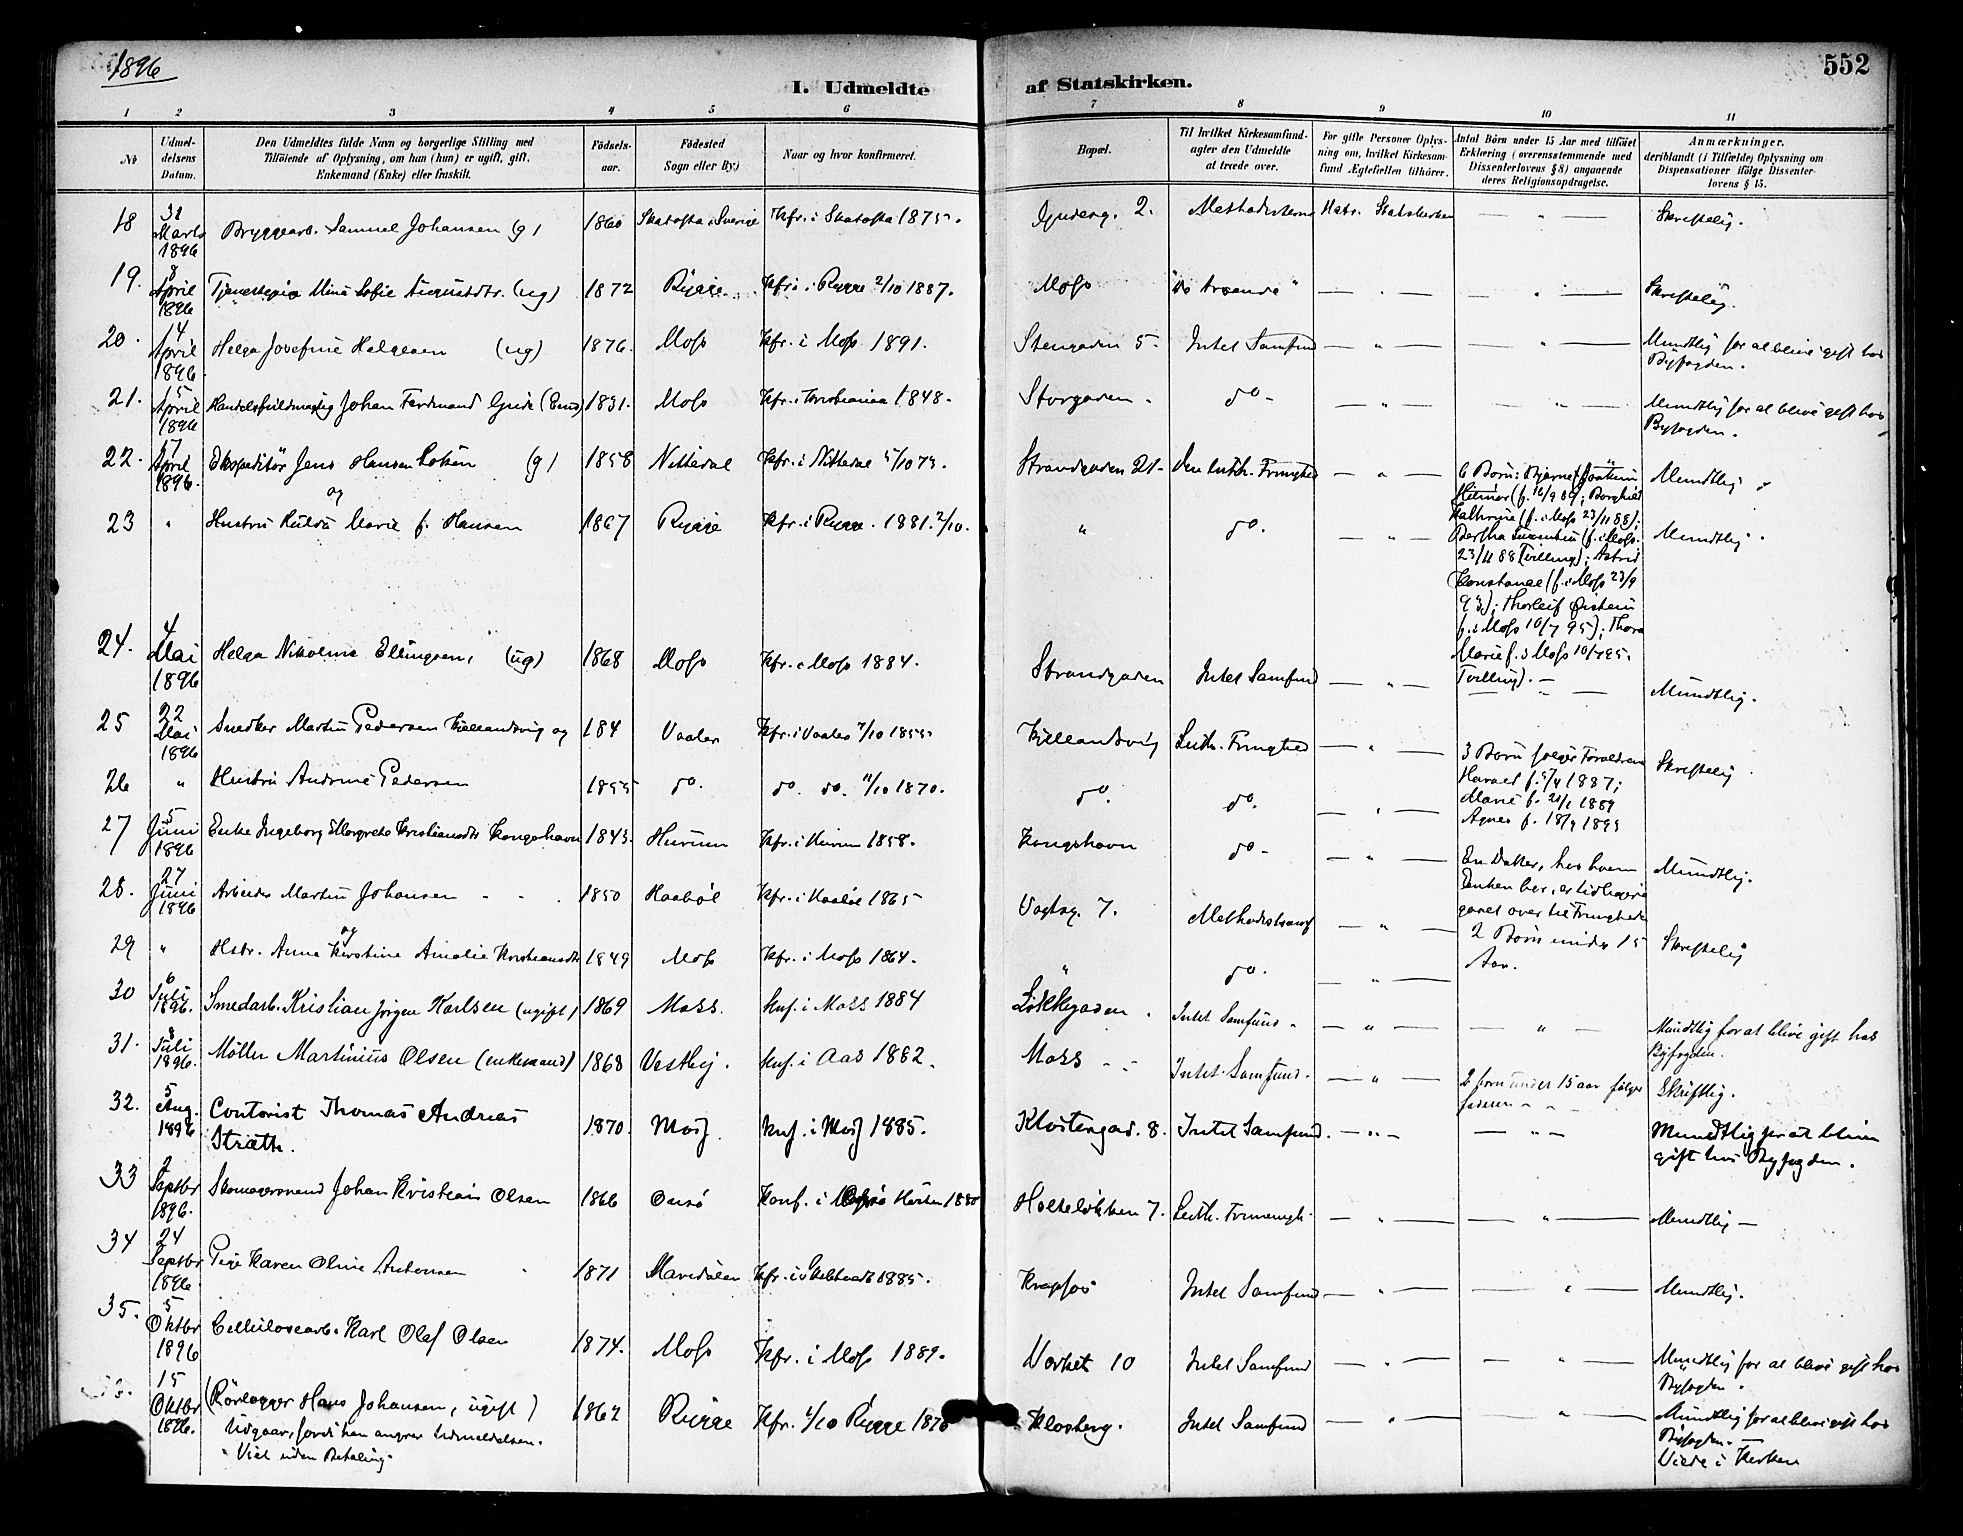 1896
552
I. Udmeldte af Statskirken.
1 2 3 4 5 6 7 8 9 10 11
No
Udmel-
delsens
Datum.
Den Udmeldtes fulde Navn og borgerlige Stilling med
Tilføiende af Oplysning, om han (hun) er ugift, gift,
Enkemand (Enke) eller fraskilt.
Fødsels-
aar.
Fødested
Sogn eller By:)
Naar og hvor konfirmeret.
Bopæl.
Til hvilket Kirkesamfund
agter den Udmeldte
at træde over.
For gifte Personer Oplys-
ning om, hvilket Kirkesam-
fund Ægtefællen tilhører.
Antal Børn under 15 Aar med tilføiet
Erklæring (overensstemmende med
Dissenterlovens § 8) angaaende
deres Religionsopdragelse.
Anmærkninger,
deriblandt (i Tilfælde) Oplysning om
Dispensationer ifølge Dissenter-
lovens § 15.
18 31 Marts 1896 Bryggearb. Samuel Johansen (g) 1860 Skatofta i Sverige Kfr. i Skatofta 1875. 2. Methodisterne Hstr. Statskirken — " — Skriftelig.
19. 8 April 1896 Tjenestepige Mina Sofie Augustdtr. (ug) 1872 Rygge Kfr. i Rygge 2/10 1887. Moss — " — — " — Skriftelig.
20. 14 April 1896 Helga Josefine Helgesen (ug) 1876. Moss Kfr. i Moss 1891. Stengaden 5. Intet Samfund — " — — " — Mundtlig for at blive gift hos
Byfogden.
21. 15 April 1896 Handelsfuldmægtig Johan Ferdmand Gude (Enkem) 1831. Moss Kfr. i Kristiania 1848. Storgaden do — " — — " — Mundtlig for at blive gift hos
Byfogden.
22. 17 April 1896. Ekspeditör Jens Hansen Loken (g) 1858 Nittedal Kfr. i Nittedal 5/10 73. Strandgaden 21 Den luth. Frimghed — " — Mundtlig
og
23 " Hustru Hulda Marie f. Hansen 1867 Rygge Kfr. i Rygge 1881. 2/10. " do. — " — Mundtlig.
6 Børn: Bjarne Joakim
Hilmar (f. 16/9 89; Borghild
Kathrine (f. i Moss 23/11 88);
Bertha (f. i Moss
23/11 88 Tvilling); Astrid
Konstance (f. i Moss 23/9
93); Thorleif Øistein
f. i Moss 10/7 95); Thora
Marie f. i Moss 10/7 95.
Tvilling). —
24. 4 Mai 1896 Helga Nikoline Ellingsen, (ug) 1868 Moss Kfr. i Moss 1884. Strandgaden Intet Samfund — " — — " — Mundtlig.
25 22 Mai 1896 Snedker Martin Pedersen Kjellandsvig og 184 Vaaler Kfr. i Vaaler 7/10 1855 Kjellandsvig Luth. Frimghed — " — Skriftelig
26 " Hustru Andrine Pedersen 1855 do. do. do. 11/10 1870. do. do. — " —
3 Børn følger Forældrene
Harald f. 5/4 1887;
Marie f. 21/1 1889
Agnes f. 18/9 1893
27 5 Juni 1896 Enke Ingeborg Margrete Kristiansdtr Kongshavn 1843. Hurum Kfr. i Hurum 1858. Kongshavn do — " — Mundtlig.
En Datter, hos hvem
Enken bor, er tidligere
gaaet over til Frimgheden
28. 27 Juni 1896 Arbeider Martin Johansen 1850 Haabøl Kfr. i Haabøl 1865 Vogtsg. 7. Methodistsamf — " — 2 Børn under 15
Aar. Skriftelig
og
29 " Hstr. Anna Kirstine Amalie Kristiansdtr 1849 Moss Kfr. i Moss 1864. " do. — " —
30 6 Juli 1896. Smedarb. Kristian Jörgen Karlsen (ugift) 1869 Moss. Knf. i Moss 1884 Løkkegaden. Intet Samfund — " — — " — Mundtlig for at blive gift hos
Byfogden.
31. 8 Juli 1896. Møller Martinius Olsen (enkemand) 1868 Vestby. Knf. i Aas 1882. Moss Intet Samfund. — " — 2 børn under 15 aar følger
faderen Skriftlig.
32. 5 Aug. 1896 Contorist Thomas Andreas
Strath. 1870. Moss. Knf. i Moss 1885. Klostergad. 8. Intet Samfund. — " — — " — Mundtlig for at blive
gift hos Byfogden.
33 2 Septbr 1896. Skomagersvend Johan Kristian Olsen 1866 Onsö Konf. i Horten 1880 Holteløkken 7. Luth. Frimengh. — " — — " — Mundtlig —
34 24 Septbr 1896 Pige Karen Oline Antonsen 1871 Kfr. i 1885. Krapfos Intet Samfund — " — — " — Mundtlig.
35. 5 Oktbr 1896 Cellulosearb. Karl Olaf Olsen 1874. Moss Kfr. i Moss 1889. Værket 10 Intet Samfund — " — — " — Mundtlig for at blive gift hos
Byfogden.
15 Oktbr 1896. (Rörlægger Hans Johansen, ugift) 1862 Rygge Kfr. 1/10 Rygge 1876 Klosterg. Intet Samfund — " — " — Mundtlig for at blive gift hos
Byfogden.
Udgaar, fordi han angrer Udmeldelsen.
Viet uden Betaling. Viede i Kirken